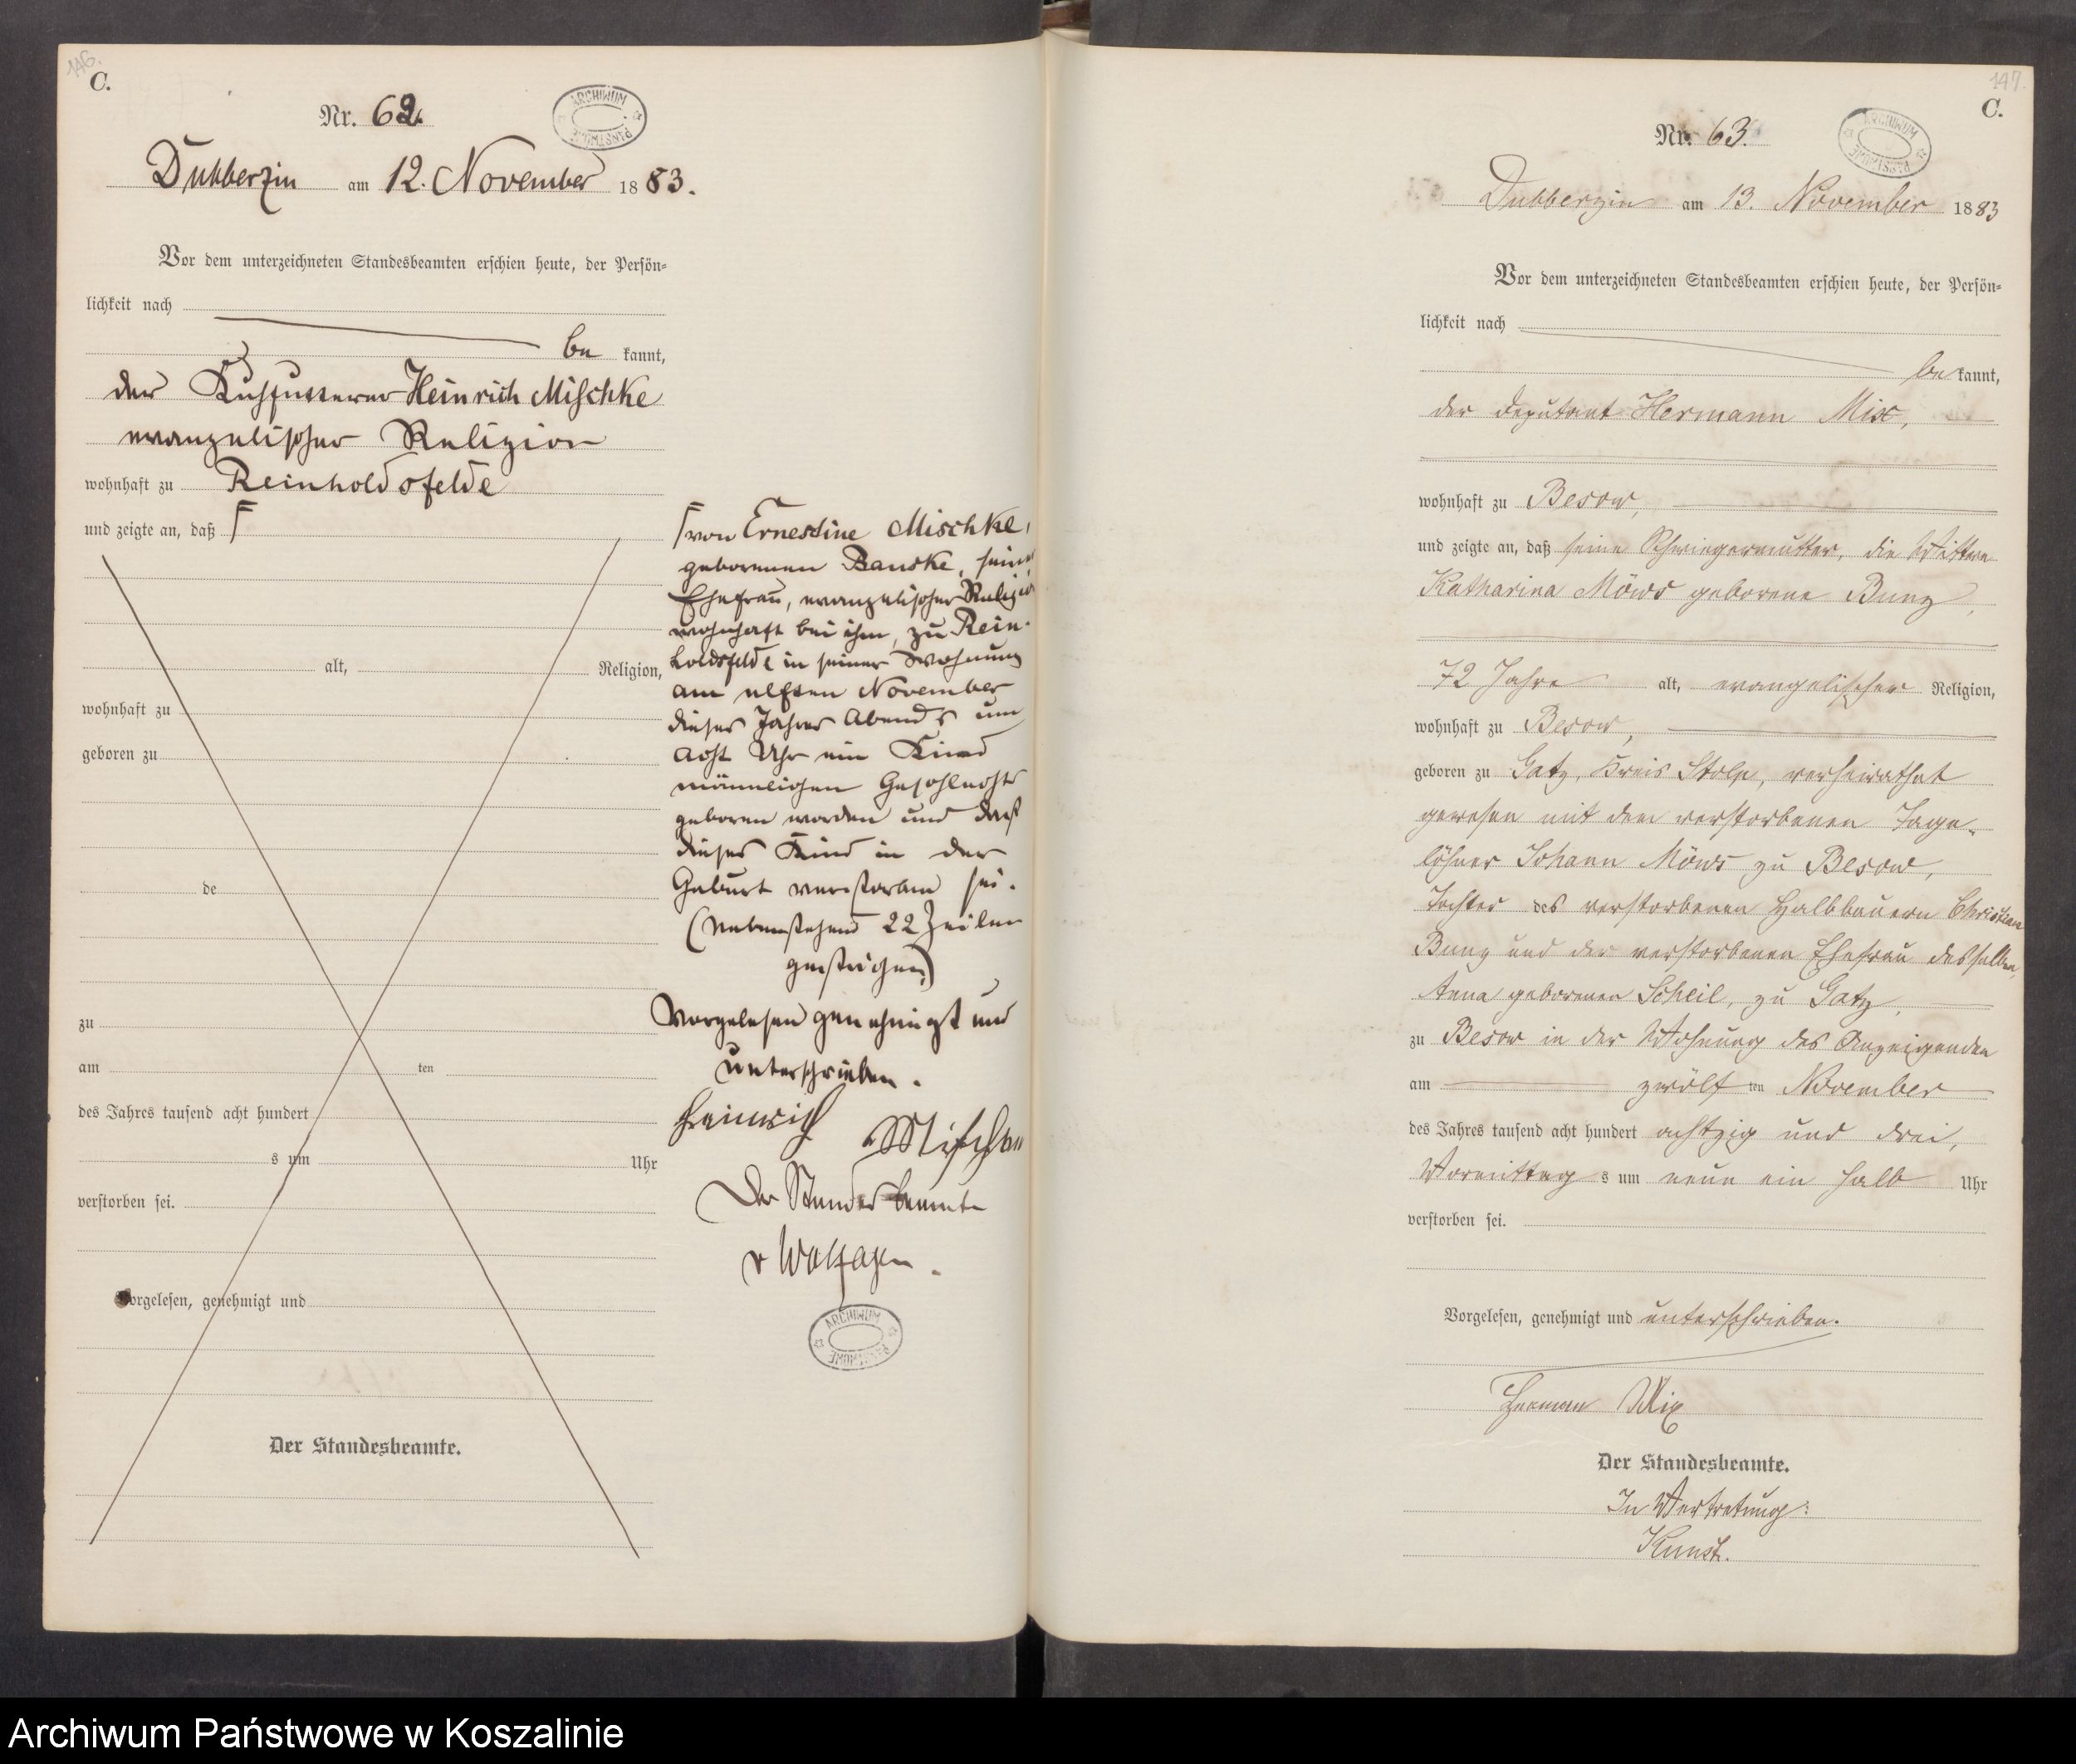 146.
C.
Nr. 62.
ARCHIWUM PAŃSTWOWE
Dubberzin am 12. November 1883.
Vor dem unterzeichneten Standesbeamten erschien heute, der Persön-
lichkeit nach
be kannt,
der Kuhfutterer Heinrich Mischke
evangelischer Religion
wohnhaft zu Reinholdsfelde
und zeigte an, daß
alt, Religion,
wohnhaft zu
geboren zu
de
zu
am ten
des Jahres tausend acht hundert
s um Uhr
verstorben sei.
Vorgelesen, genehmigt und
Der Standesbeamte.
von Ernestine Mischke,
geborenen Banske, seiner
Ehefrau, evangelischer Religion
wohnhaft bei ihm, zu Rein-
holdsfelde in seiner Wohnung
am elften November
dieses Jahres Abends um
acht Uhr ein Kind
männlichen Geschlechts
geboren worden und daß
dieses Kind in der
Geburt verstorben sei.
(Nebenstehend 22 Zeilen
gestrichen)
Vorgelesen genehmigt und
unterschrieben.
Heinrich Mischke
Der Standesbeamte
v
ARCHIWUM PAŃSTWOWE
147.
C.
Nr. 63.
ARCHIWUM PAŃSTWOWE
Dubberzin am 13. November 1883
Vor dem unterzeichneten Standesbeamten erschien heute, der Persön-
lichkeit nach
be kannt,
der Deputant Hermann Mix,
wohnhaft zu Besow,
und zeigte an, daß seine Schwiegermutter, die Wittwe
Katharina Möws geborene Bunz,
72 Jahre alt, evangelischer Religion,
wohnhaft zu Besow,
geboren zu Gatz, Kreis Stolp, verheirathet
gewesen mit dem verstorbenen Tage-
löhner Johann Möws zu Besow,
Tochter des verstorbenen Halbbauern Christian
Bunz und der verstorbenen Ehefrau desselben,
Anna geborenen Scheil, zu Gatz,
zu Besow in der Wohnung des Anzeigenden
am zwölf ten November
des Jahres tausend acht hundert achtzig und drei,
Vormittag s um neun ein halb Uhr
verstorben sei.
Vorgelesen, genehmigt und unterschrieben.
Herman Mix
Der Standesbeamte.
In Vertretung:
Kunst.
Archiwum Państwowe w Koszalinie